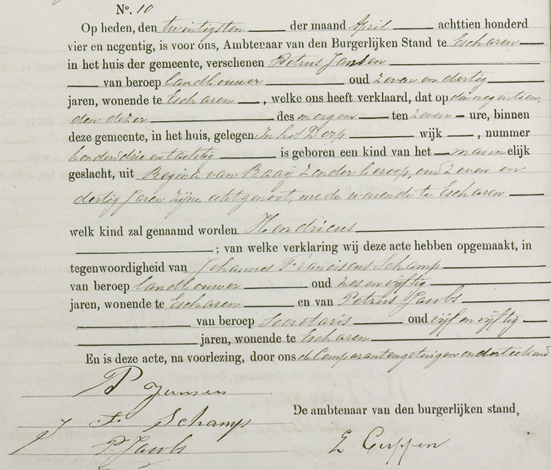 No. 10
Op heden, den twintigsten der maand April achttien honderd
vier en negentig, is voor ons, Ambtenaar van den Burgerlijken Stand te Escharen
in het huis der gemeente, verschenen Petrus Jansen
van beroep landbouwer oud zeven en dertig
jaren, wonende te Escharen, welke ons heeft verklaard, dat op den negentien
den dezer des morgens ten zeven ure, binnen
deze gemeente, in het huis, gelegen In het Dorp wijk, nummer
honderd drie en tachtig is geboren een kind van het mannelijk
geslacht, uit Regina van Raaij zonder beroep, oud zeven en
dertig jaren zijne echtgenoot, mede wonende te Escharen
welk kind zal genaamd worden Hendricus
; van welke verklaring wij deze acte hebben opgemaakt, in
tegenwoordigheid van Johannes Franciscus Schamp
van beroep landbouwer oud zes en vijftig
jaren, wonende te Escharen en van Petrus Jacobs
van beroep Secretaris oud vijf en vijftig
jaren, wonende te Escharen
En is deze acte, na voorlezing, door ons de Comparant en getuigen onderteekend
P Jansen
J F Schamp
P Jacobs
De ambtenaar van den burgerlijken stand,